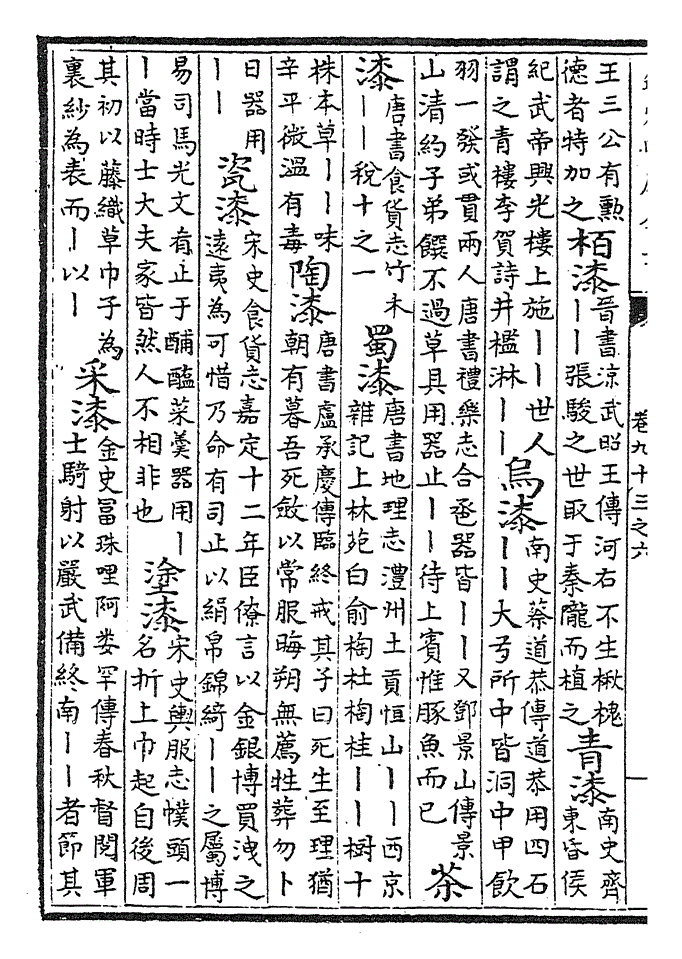 王三公有勲德者特加之栢漆晉書涼武昭王傳河右不生楸槐丨丨張駿之世取于秦隴而植之青漆南史齊東昏侯
紀武帝興光樓上施丨丨世人謂之青樓李賀詩井檻淋丨丨烏漆南史蔡道恭傳道恭用四石丨丨大弓所中皆洞中甲飲
羽一發或貫兩人唐書禮樂志合巹器皆丨丨又鄧景山傳景山清約子弟饌不過草具用器止丨丨待上賓惟豚魚而已茶
漆唐書食貨志竹木丨丨稅十之一蜀漆唐書地理志澧州土貢恒山丨丨西京雜記上林苑白俞栒杜栒桂丨丨樹十
株本草丨丨味辛平微温有毒陶漆唐書盧承慶傳臨終戒其子曰死生至理猶朝有暮吾死斂以常服晦朔無薦牲葬勿卜
日器用丨丨瓷漆宋史食貨志嘉定十二年臣僚言以金銀博買洩之遠夷為可惜乃命有司止以絹帛錦綺丨丨之屬博
易司馬光文有止于酺醢菜羮器用丨丨當時士大夫家皆然人不相非也塗漆宋史輿服志幞頭一名折上巾起自後周
其初以藤織草巾子為裏紗為表而丨以丨采漆金史冨珠哩阿娄罕傳春秋督閲軍士騎射以嚴武備終南丨丨者節其
卷九十三之六